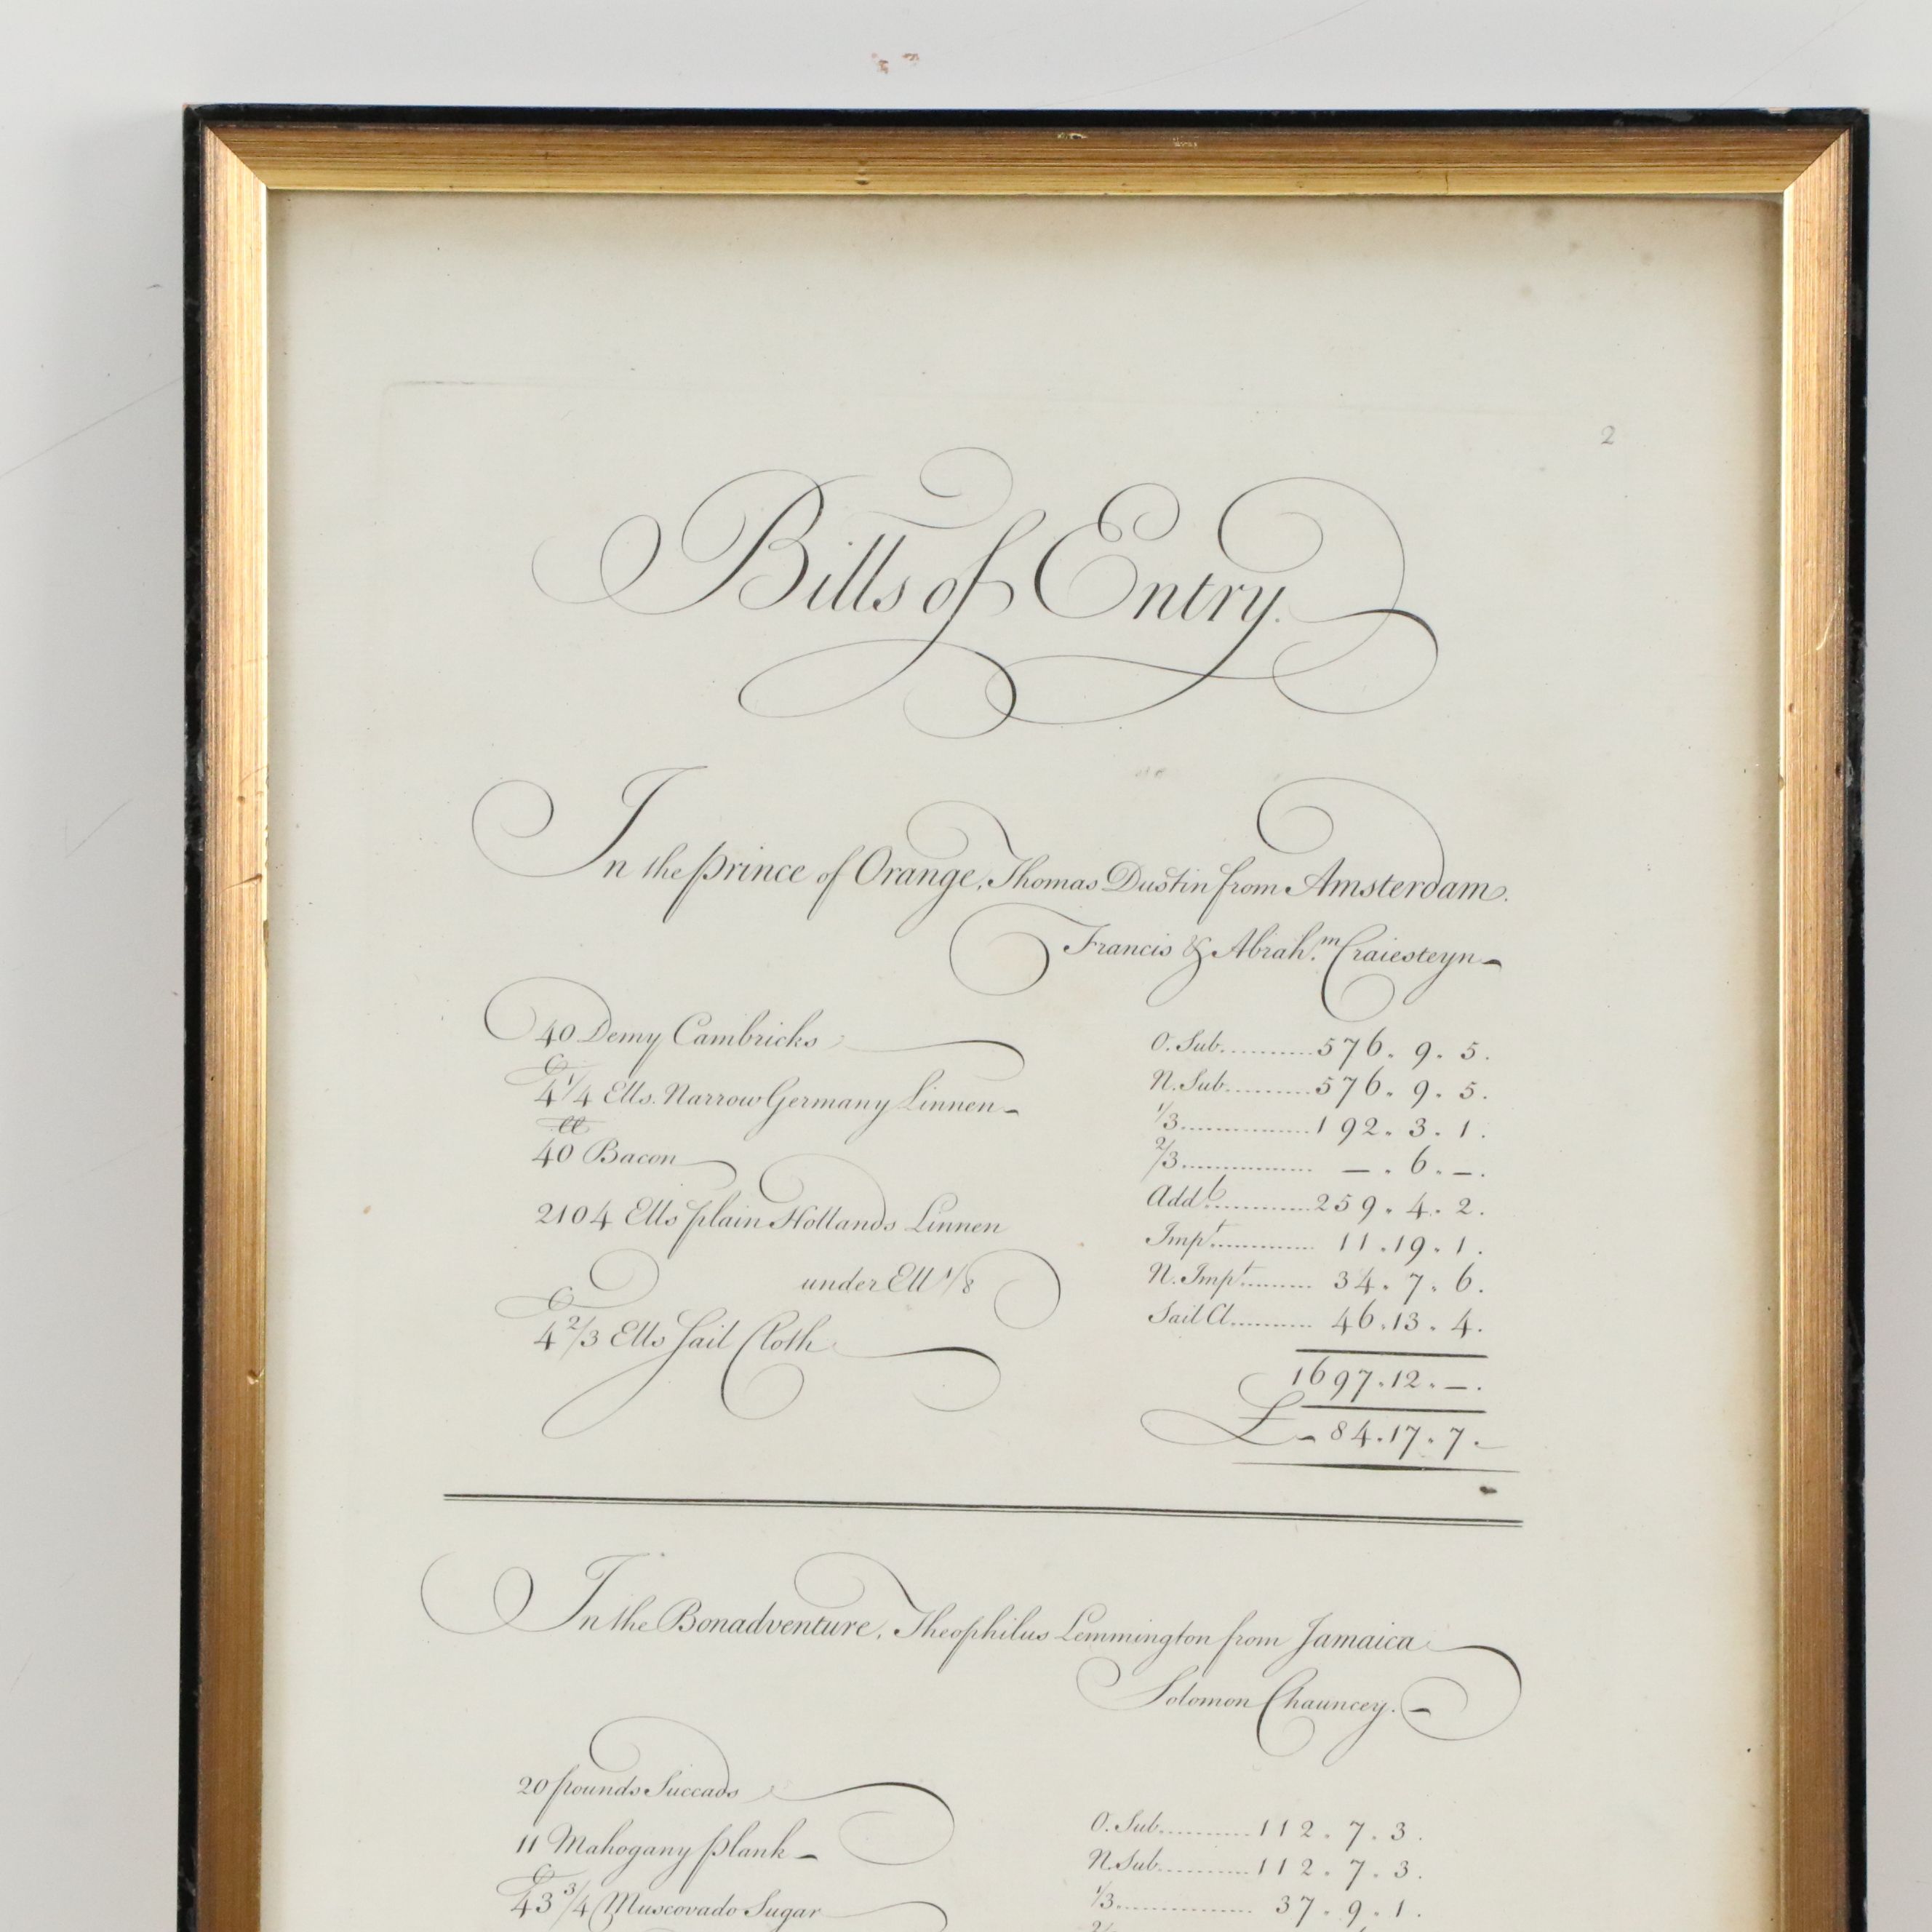 2
Bills of Entry.
In the prince of Orange, Thomas Dustin from Amsterdam.
Francis & Abrah.m Craiesteyn
40 Demy Cambricks
C
4 1/4 Ells. Narrow Germany Linnen
40 Bacon
2104 Ells plain Hollands Linnen
under Ell 1/8
C
4 2/3 Ells Sail Cloth
O. Sub...........576. 9. 5.
N. Sub...........576. 9. 5.
1/3................192. 3. 1.
2/3................ —. 6. —.
Add.l.............259. 4. 2.
Imp.t............. 11. 19. 1.
N. Imp.t......... 34. 7. 6.
Sail Cl........... 46. 13. 4.
1697. 12. —.
£ 84. 17. 7.
In the Bonadventure, Theophilus Lemmington from Jamaica
Solomon Chauncey.
20 pounds Succads
11 Mahogany plank
C
43 3/4 Muscovado Sugar
O. Sub...........112. 7. 3.
N. Sub...........112. 7. 3.
1/3................ 37. 9. 1.